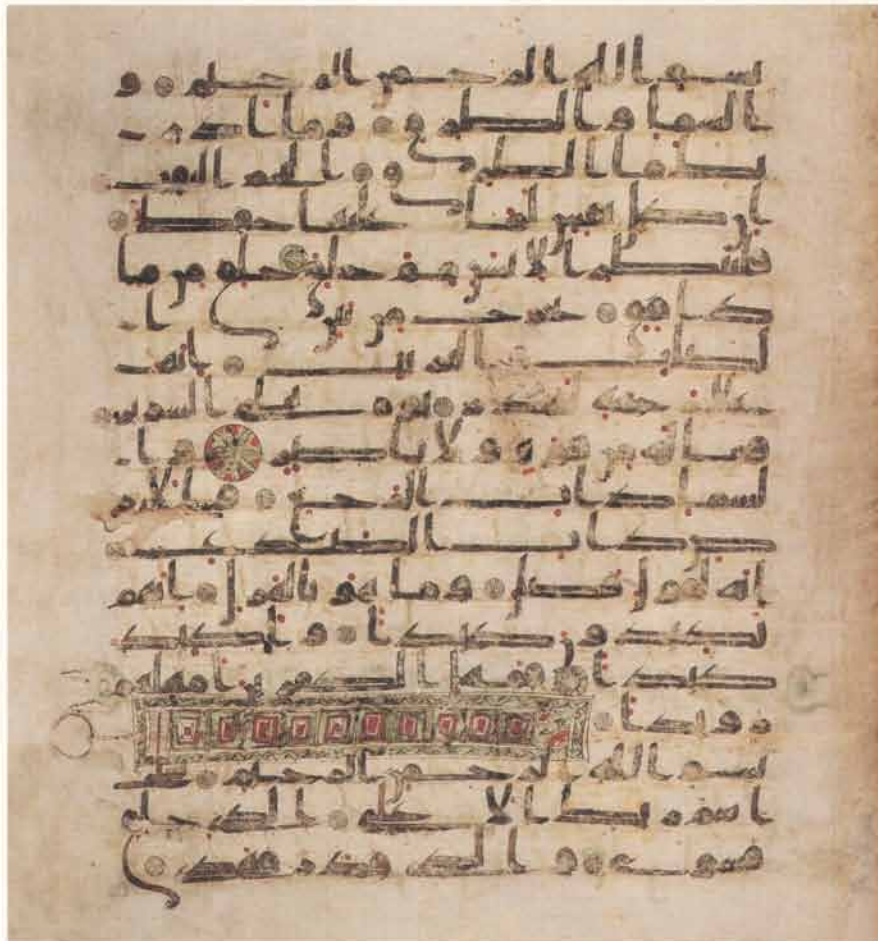 بسم الله الرحمن الرحيم و
السما والطارق وما ادر
ىك ما الطارق النجم الثقب
ان كل نفس لما عليها حفظ
فلينظر الانسن مم خلق خلق من ما
دافق يخرج من بين ا
لصلب والترائب انه
على رجعه لقدر يوم تبلى السرئر
فما له من قوة ولا ناصر وا
لسما ذات الرجع والار
ض ذات الصدع
انه لقول فصل وما هو بالهزل انهم
يكيدون كيدا واكيد
كيدا فمهل الكفرين امهلهم
رويدا
بسم الله الرحمن الرحيم سبح
اسم ربك الاعلى الذي خلق
فسوى والذي قدر فهدى